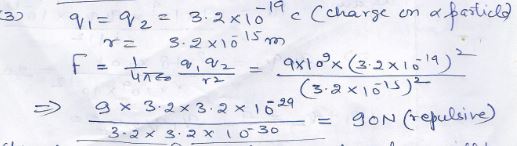 (3) q₁ = q₂ = 3·2×10⁻¹⁹ c (charge on α particle)
r = 3·2×10⁻¹⁵ m
F = 1/4πε₀ q₁q₂/r² = 9×10⁹×(3·2×10⁻¹⁹)²/(3·2×10⁻¹⁵)²
⇒ 9×3·2×3·2×10⁻²⁹/3·2×3·2×10⁻³⁰ = 90N (repulsive)